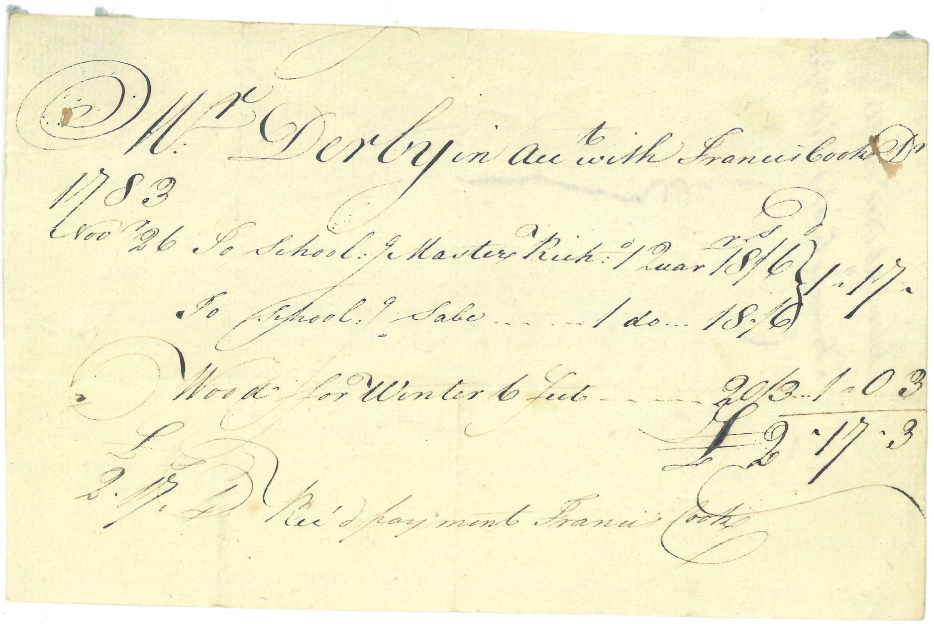 Mr. Derby in acct with Francis Cook Dr
1783
Novr 26 To School:g Master Rich:d 1 Quar 18/6 } 1 " 17 "
To School:g Sabe ...... 1 do... 18/6
Wood for Winter 6 feet ------ 20/3... 1 " 0 3
£ 2 " 17 " 3
£
2. 17. Rec'd payment Francis Cook